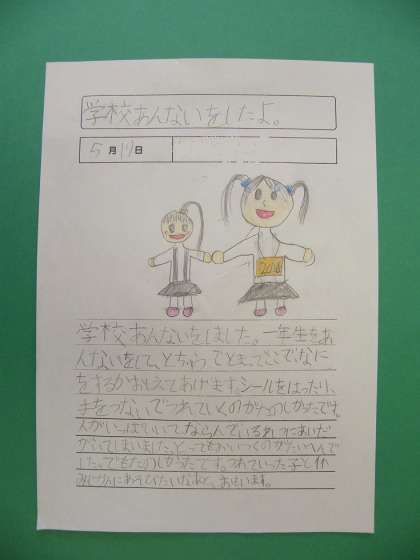 学校あんないをしたよ。
5月17日
学校あんないをしました。一年生をあ
んないをして、とちゅうでとまってここで、なに
をするかおしえてあげます。シールをはったり、
手をつないでつれていくのがたのしかったです。
人がいっぱいいてならんでいるれつにあいだ
がたいへんで
した。でもたのしかったです。つれていった子と休
みじかんにあそびたいなあと、おもいます。